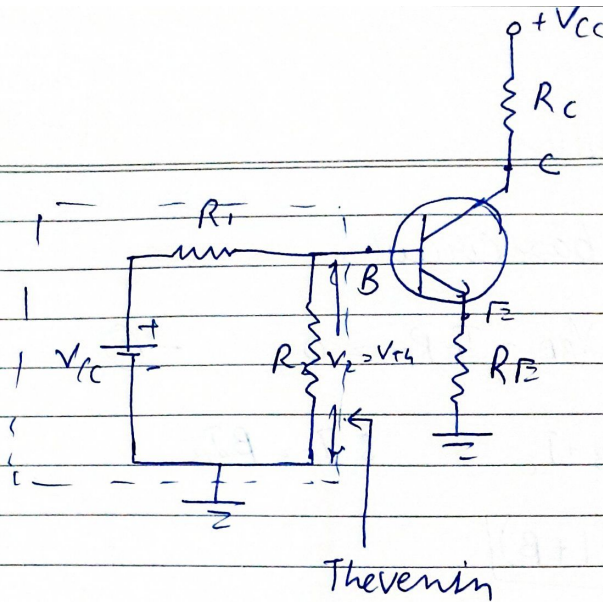 +VCC
RC
C
R1
B
E
VCC
+
-
R2
V2=Vth
RE
Thevenin